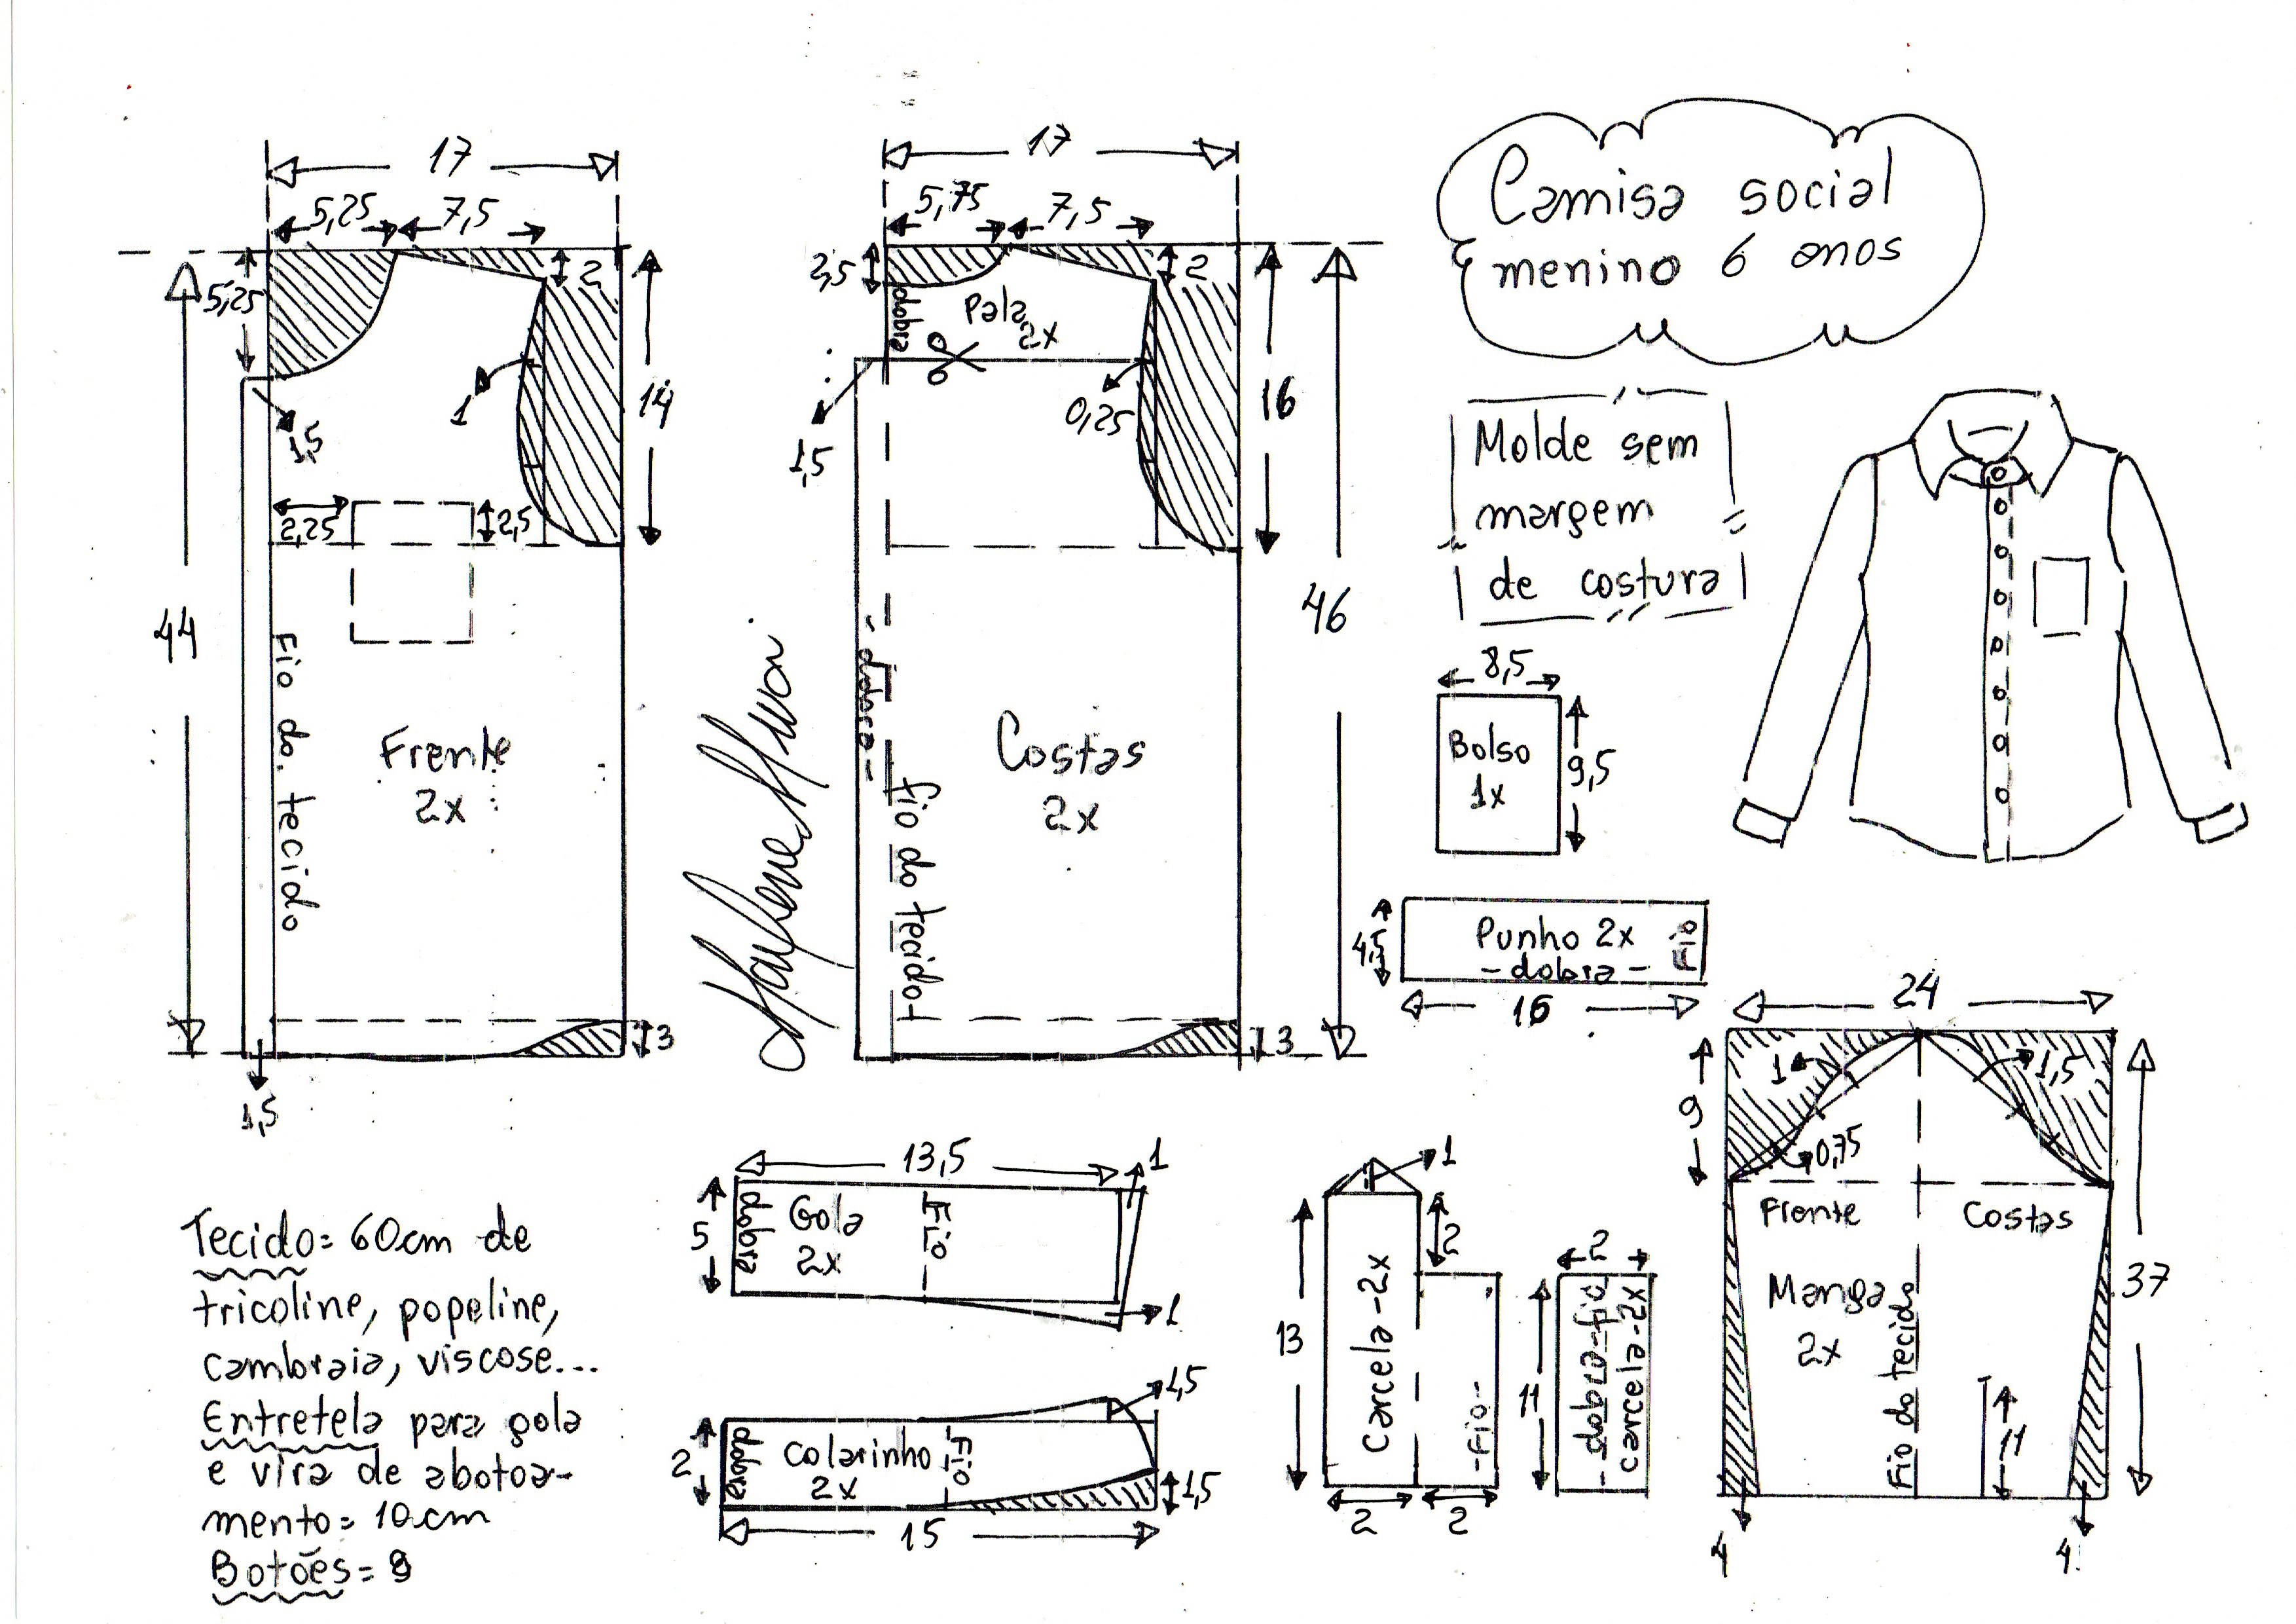 Camisa social
menino 6 anos
Molde sem
margem
de costura
17
5,25
7,5
5,25
2
14
1
1,5
2,25
2,5
44
Fio do tecido
Frente
2x
3
1,5
17
5,75
7,5
2,5
2
dobra
Pala
2x
16
0,25
1,5
46
- dobra -
fio do tecido
Costas
2x
3
8,5
Bolso
1x
9,5
4,5
Punho 2x
- dobra -
Fio
16
24
9
1
1,5
0,75
Frente
Costas
Manga
2x
Fio do tecido
37
11
4
4
13,5
1
5
dobra
Gola
2x
Fio
1
1,5
2
dobra
Colarinho
2x
Fio
1,5
15
1
2
13
Carcela - 2x
- Fio -
2
2
2
11
- dobra - fio
carcela - 2x
Tecido = 60cm de
tricoline, popeline,
cambraia, viscose...
Entretela para gola
e vira de abotoa-
mento = 10cm
Botões = 9